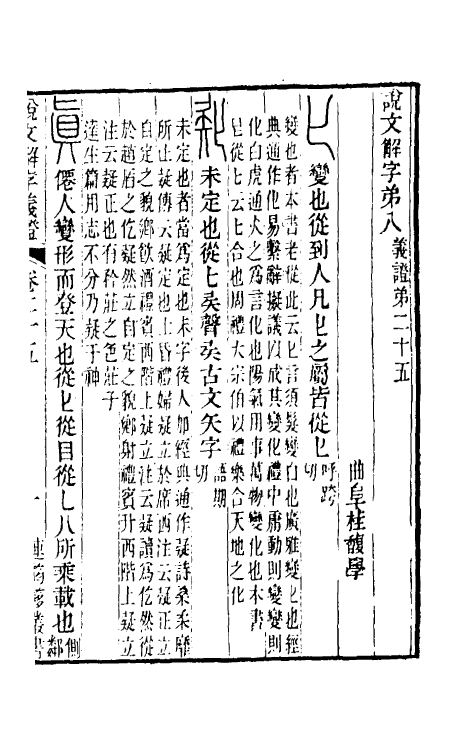 說文解字弟八 義證弟二十五
曲阜桂馥學
𠤎 變也從到人凡𠤎之屬皆從𠤎 呼跨切
變也者本書老從此云𠤎言須髮變白也廣雅變𠤎也經
典通作化易繫辭擬議以成其變化禮中庸動則變變則
化白虎通火之為言化也陽氣用事萬物變化也本書
皀從𠤎云𠤎合也周禮大宗伯以禮樂合天地之化
未定也從𠤎𠤕聲𠤕古文矢字 語期切
未定也者當為定也未字後人加經典通作疑詩桑柔靡
所止疑傳云疑定也士昏禮婦疑立於席西注云疑正立
自定之貌鄉飲酒禮賓西階上疑立注云疑讀為仡然從
於趙盾之仡疑然立自定之貌鄉射禮賓升西階上疑立
注云疑止也有矜莊之色莊子
達生篇用志不分乃疑于神
眞 僊人變形而登天也從𠤎從目從乚八所乘載也 側鄰
說文解字義證 卷二十五 一 連筠簃叢書